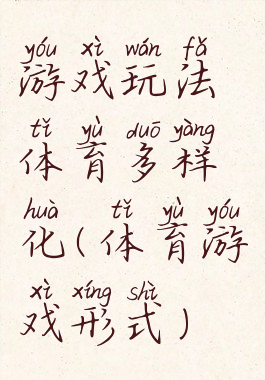 yóu xì wán fǎ
游戏玩法
tǐ yù duō yàng
体育多样
huà tǐ yù yóu
化(体育游
xì xíng shì
戏形式)